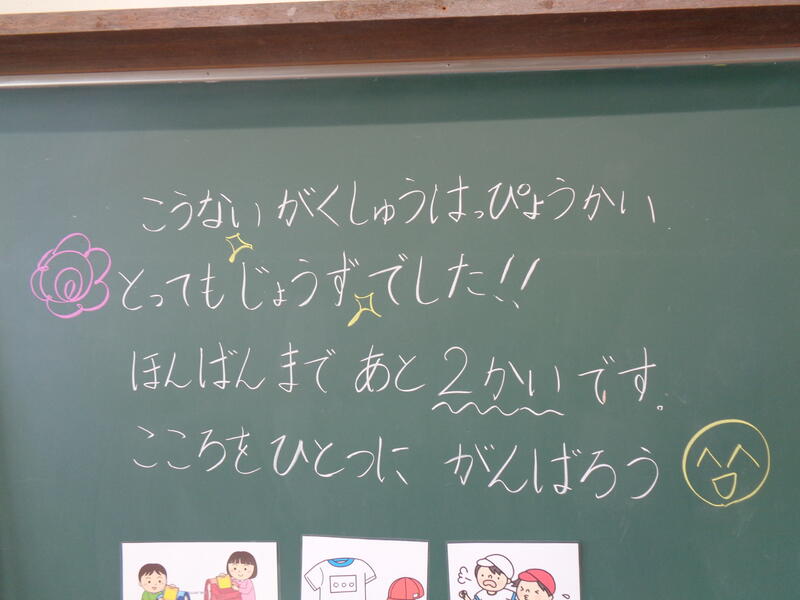 こうないがくしゅうはっぴょうかい
とってもじょうずでした!!
ほんばんまで あと 2かいです。
こころをひとつに がんばろう